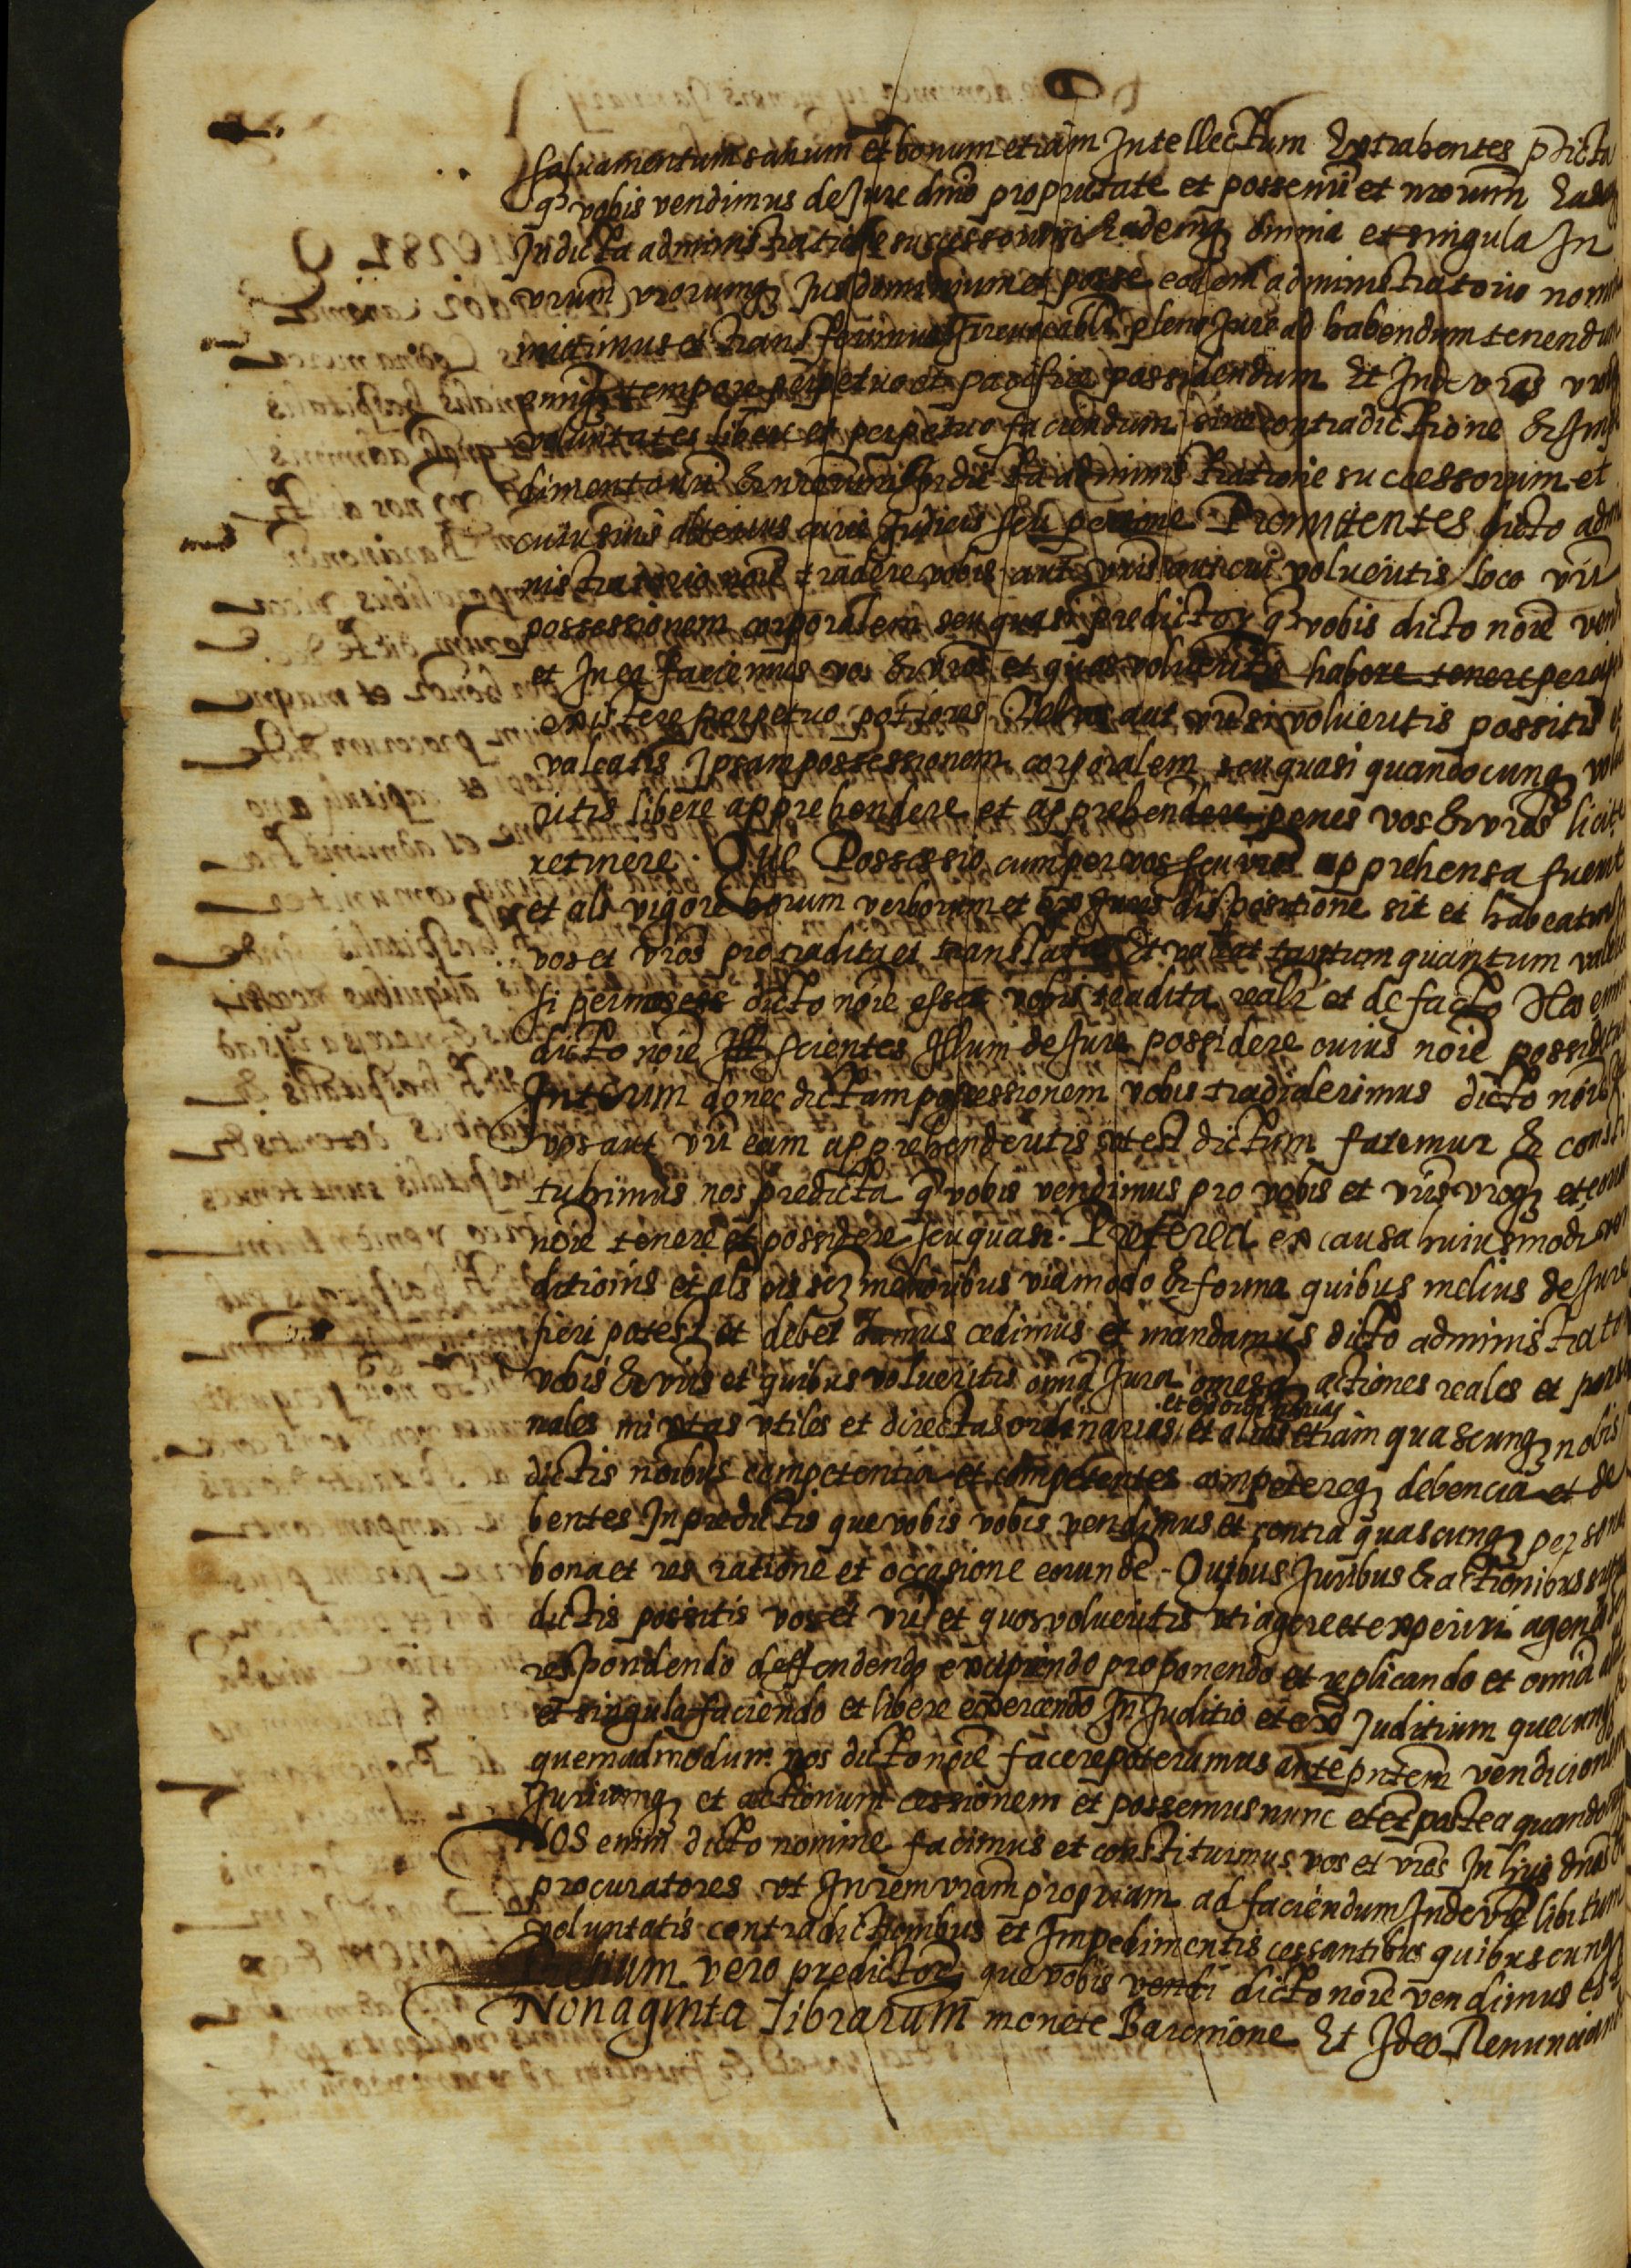 salvamentum sanum et bonum etiam Intellectum Extrahentes pdicta
q vobis vendimus de Jure dnio proprietate et posse nri et nrorum Eadeq
In dicta administratione successorum Eademq omnia et singula In
vrum vrorumq Jus dominium et posse eodem administratorio nomi
mittimus et transferimus Irrevocablr pleno Jure ad habendum tenendum
omniq tempore perpetuo et pacifice possidendum Et Inde vras vro
voluntates libere et perpetuo faciendum sine contradictione & Impe
dimento nri & nrorum In dicta administratione successorum et
cuiusvis alterius curie Judicis seu persone Promittentes dicto admi
nistratorio noie tradere vobis aut vris aut cui volueritis loco vri
possessionem corporalem seu quasi predictor q vobis dicto noie vend
et In ea faciemus vos & vros et quos volueritis habere tenere percip
existere perpetuo potiores Vel vos aut vri si volueritis possitis et
valeatis Ipsam possessionem corporalem seu quasi quandocunq volu
ritis libere apprehendere et apprehendere penes vos & vros licite
retinere. Que Possessio cum per vos seu vros apprehensa fuerit
et als vigore horum verborum et ex Juris dispositione sit et habeatur p
vos et vros pro tradita et translata Et valeat tantum quantum valeret
si per nos dicto noie esset vobis tradita realr et de facto Nos enim
dicto noie scientes Illum de Jure possidere cuius noie possidetur
Interim donec dictam possessionem vobis tradiderimus dicto noie
vos aut vri eam apprehenderitis ut est dictum fatemur & consti
tuhimus nos predicta q vobis vendimus pro vobis et vris vroq et eorum
noie tenere et possidere seu quasi. Preterea ex causa huiusmodi ven
ditionis et als melioribus via modo & forma quibus melius de Jure
fieri potest et debet damus cedimus et mandamus dicto administrator
vobis & vris et quibus volueritis omia Jura omesq actiones reales et perso
nales mixtas vtiles et directas ordinarias et extraordinarias et alias etiam quascunq nobis
dictis noibus competentia et competentes competereq debencia et de
bentes In predictis que vobis vobis vendimus et contra quascunq persona
bona et res ratione et occasione eorunde. Quibus Juribus & actionibus supra
dictis possitis vos et vri et quos volueritis vti agere et experiri agendo
respondendo deffendendo excipiendo proponendo et replicando et omia alia
et singula faciendo et libere exercendo In Juditio et ex Juditium quecunq
quemadmodum nos dicto noie facere poteramus ante pntem vendicionem
Juriumq et actionum cessionem et possemus nunc et et postea quandocunq
Nos enim dicto nomine facimus et constituimus vos et vros In his dnos
procuratores vt In rem vram propriam ad faciendum Inde vre libitum
voluntatis contradictionibus et Impedimentis cessantibus quibuscunq
Pretium vero predictor que vobis vendi dicto noie vendimus est
Nonaginta librarum monete Barcinone Et Ideo Renuncian